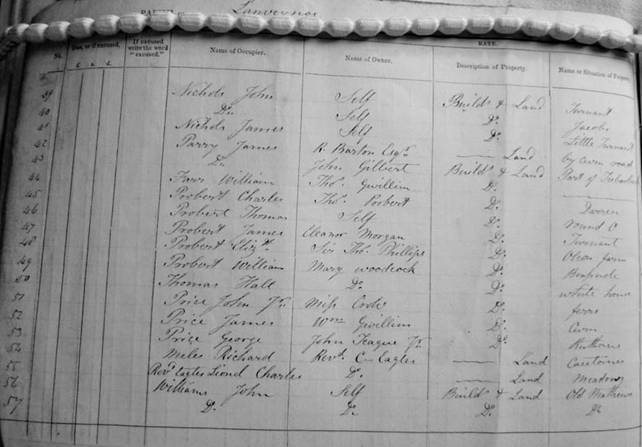 RATE.
No. Due, or if excused, If excused write the word "excused." Name of Occupier. Name of Owner. Description of Property. Name or Situation of
39 Nichols John Self Build.s & Land Turnant
40 Do. Self Do. Jacobs
41 Nichols James Self Do. Little Turnant
42 Parry James R. Barton Esqr. Land by Cwm road
43 Do. John Gilbert Build.s & Land Part of
44 William Thos. Gwillim Do.
45 Probert Charles Thos. Probert Do. Darren
46 Probert Thomas Self Do. round O
47 Probert James Eleanor Morgan Do. Turnant
48 Probert Elizth. Sir Thos. Phillips Do. farm
49 Probert William Mary Woodcock Do.
50 Thomas Hall Do. Do. white house
51 Price John Jr. Miss Cooke Do.
52 Price James Wm. Gwillim Do. Cwm
53 Price George John Teague Jr. Do.
54 Meles Richard Revd. C Eagles Land
55 Revd. Eagles Lionel Charles Do. Land Meadow
56 Williams John Self Build.s & Land Old Mathews
57 Do. Do. Do. Do.